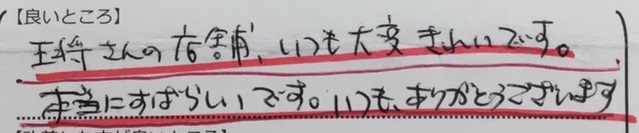 【良いところ】
王将さんの店舗、いつも大変きれいです。
本当にすばらしいです。いつも、ありがとうございます